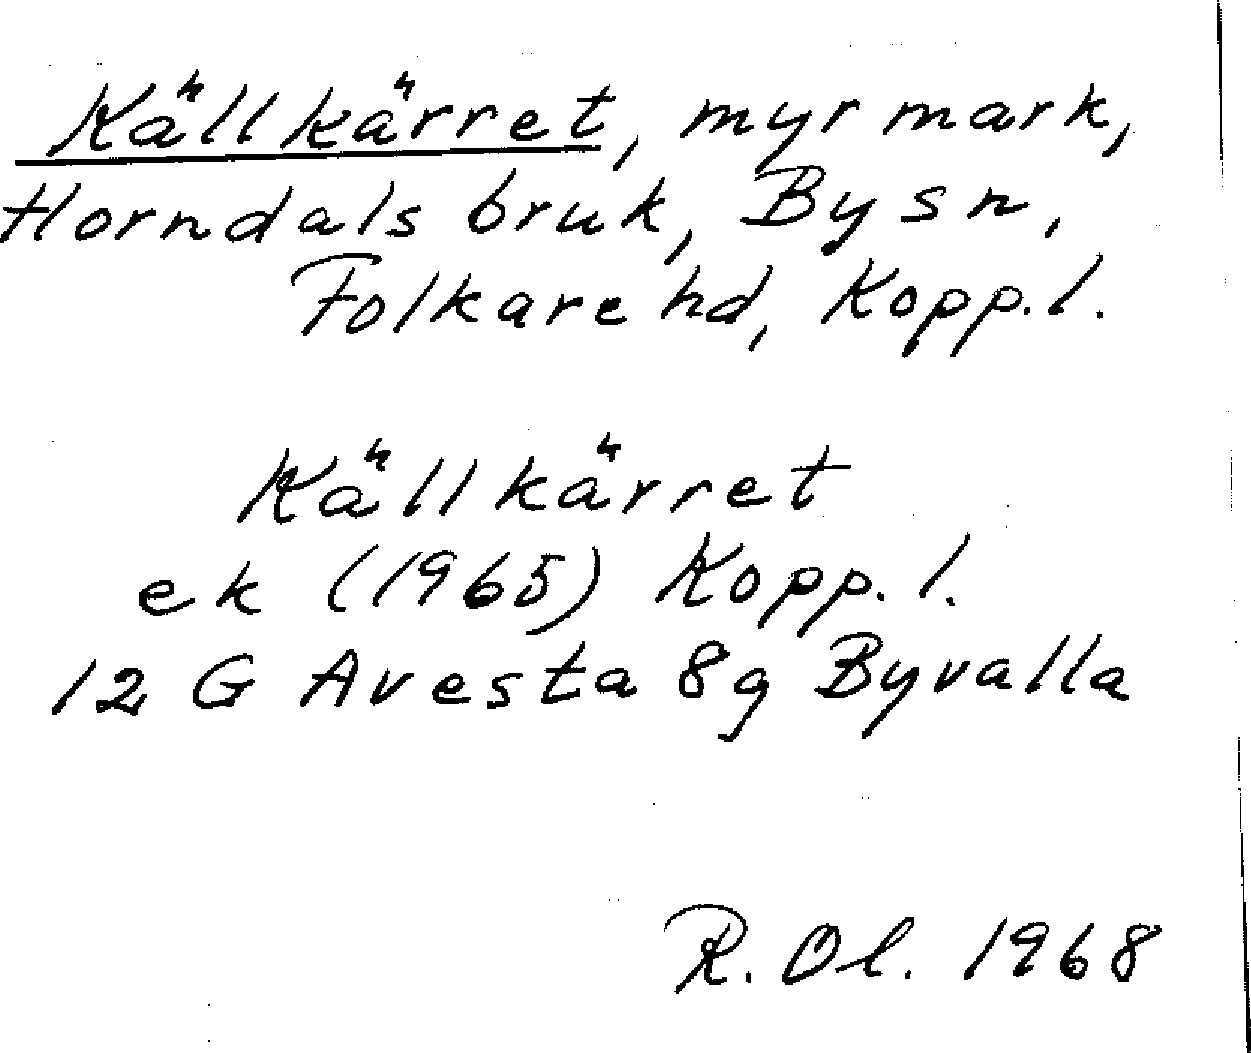 Källkärret, myrmark,
Horndals bruk, By sn,
Folkare hd, Kopp. l.
Källkärret
ek (1965) Kopp. l.
12 G Avesta 8g Byvalla
R. Ol. 1968